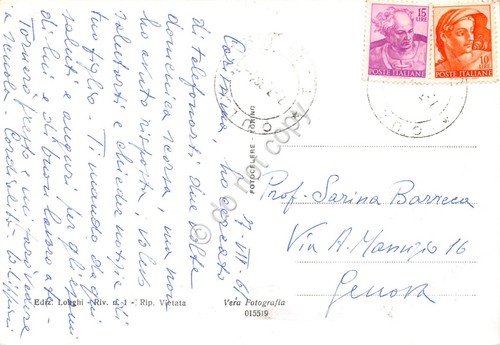 17. VII. 61
Carissima, ho cercato
di telefonarti due volte
domenica scorsa, ma non
ho avuto risposta; volevo
salutarti e chieder notizie di
tuo figlio. Ti mando da qui
saluti e auguri per gli esami
di lui e di buon lavoro a te.
Tornerò presto e mi
a scuola. Cordialità.
Ediz. Longhi - Riv. n. 1 - Rip. Vietata
Vera Fotografia
015519
FOTOCELERE TORINO
15 LIRE
POSTE ITALIANE
10 LIRE
POSTE ITALIANE
Prof. Sarina Barreca
Via A. 16
Genova
do not copy